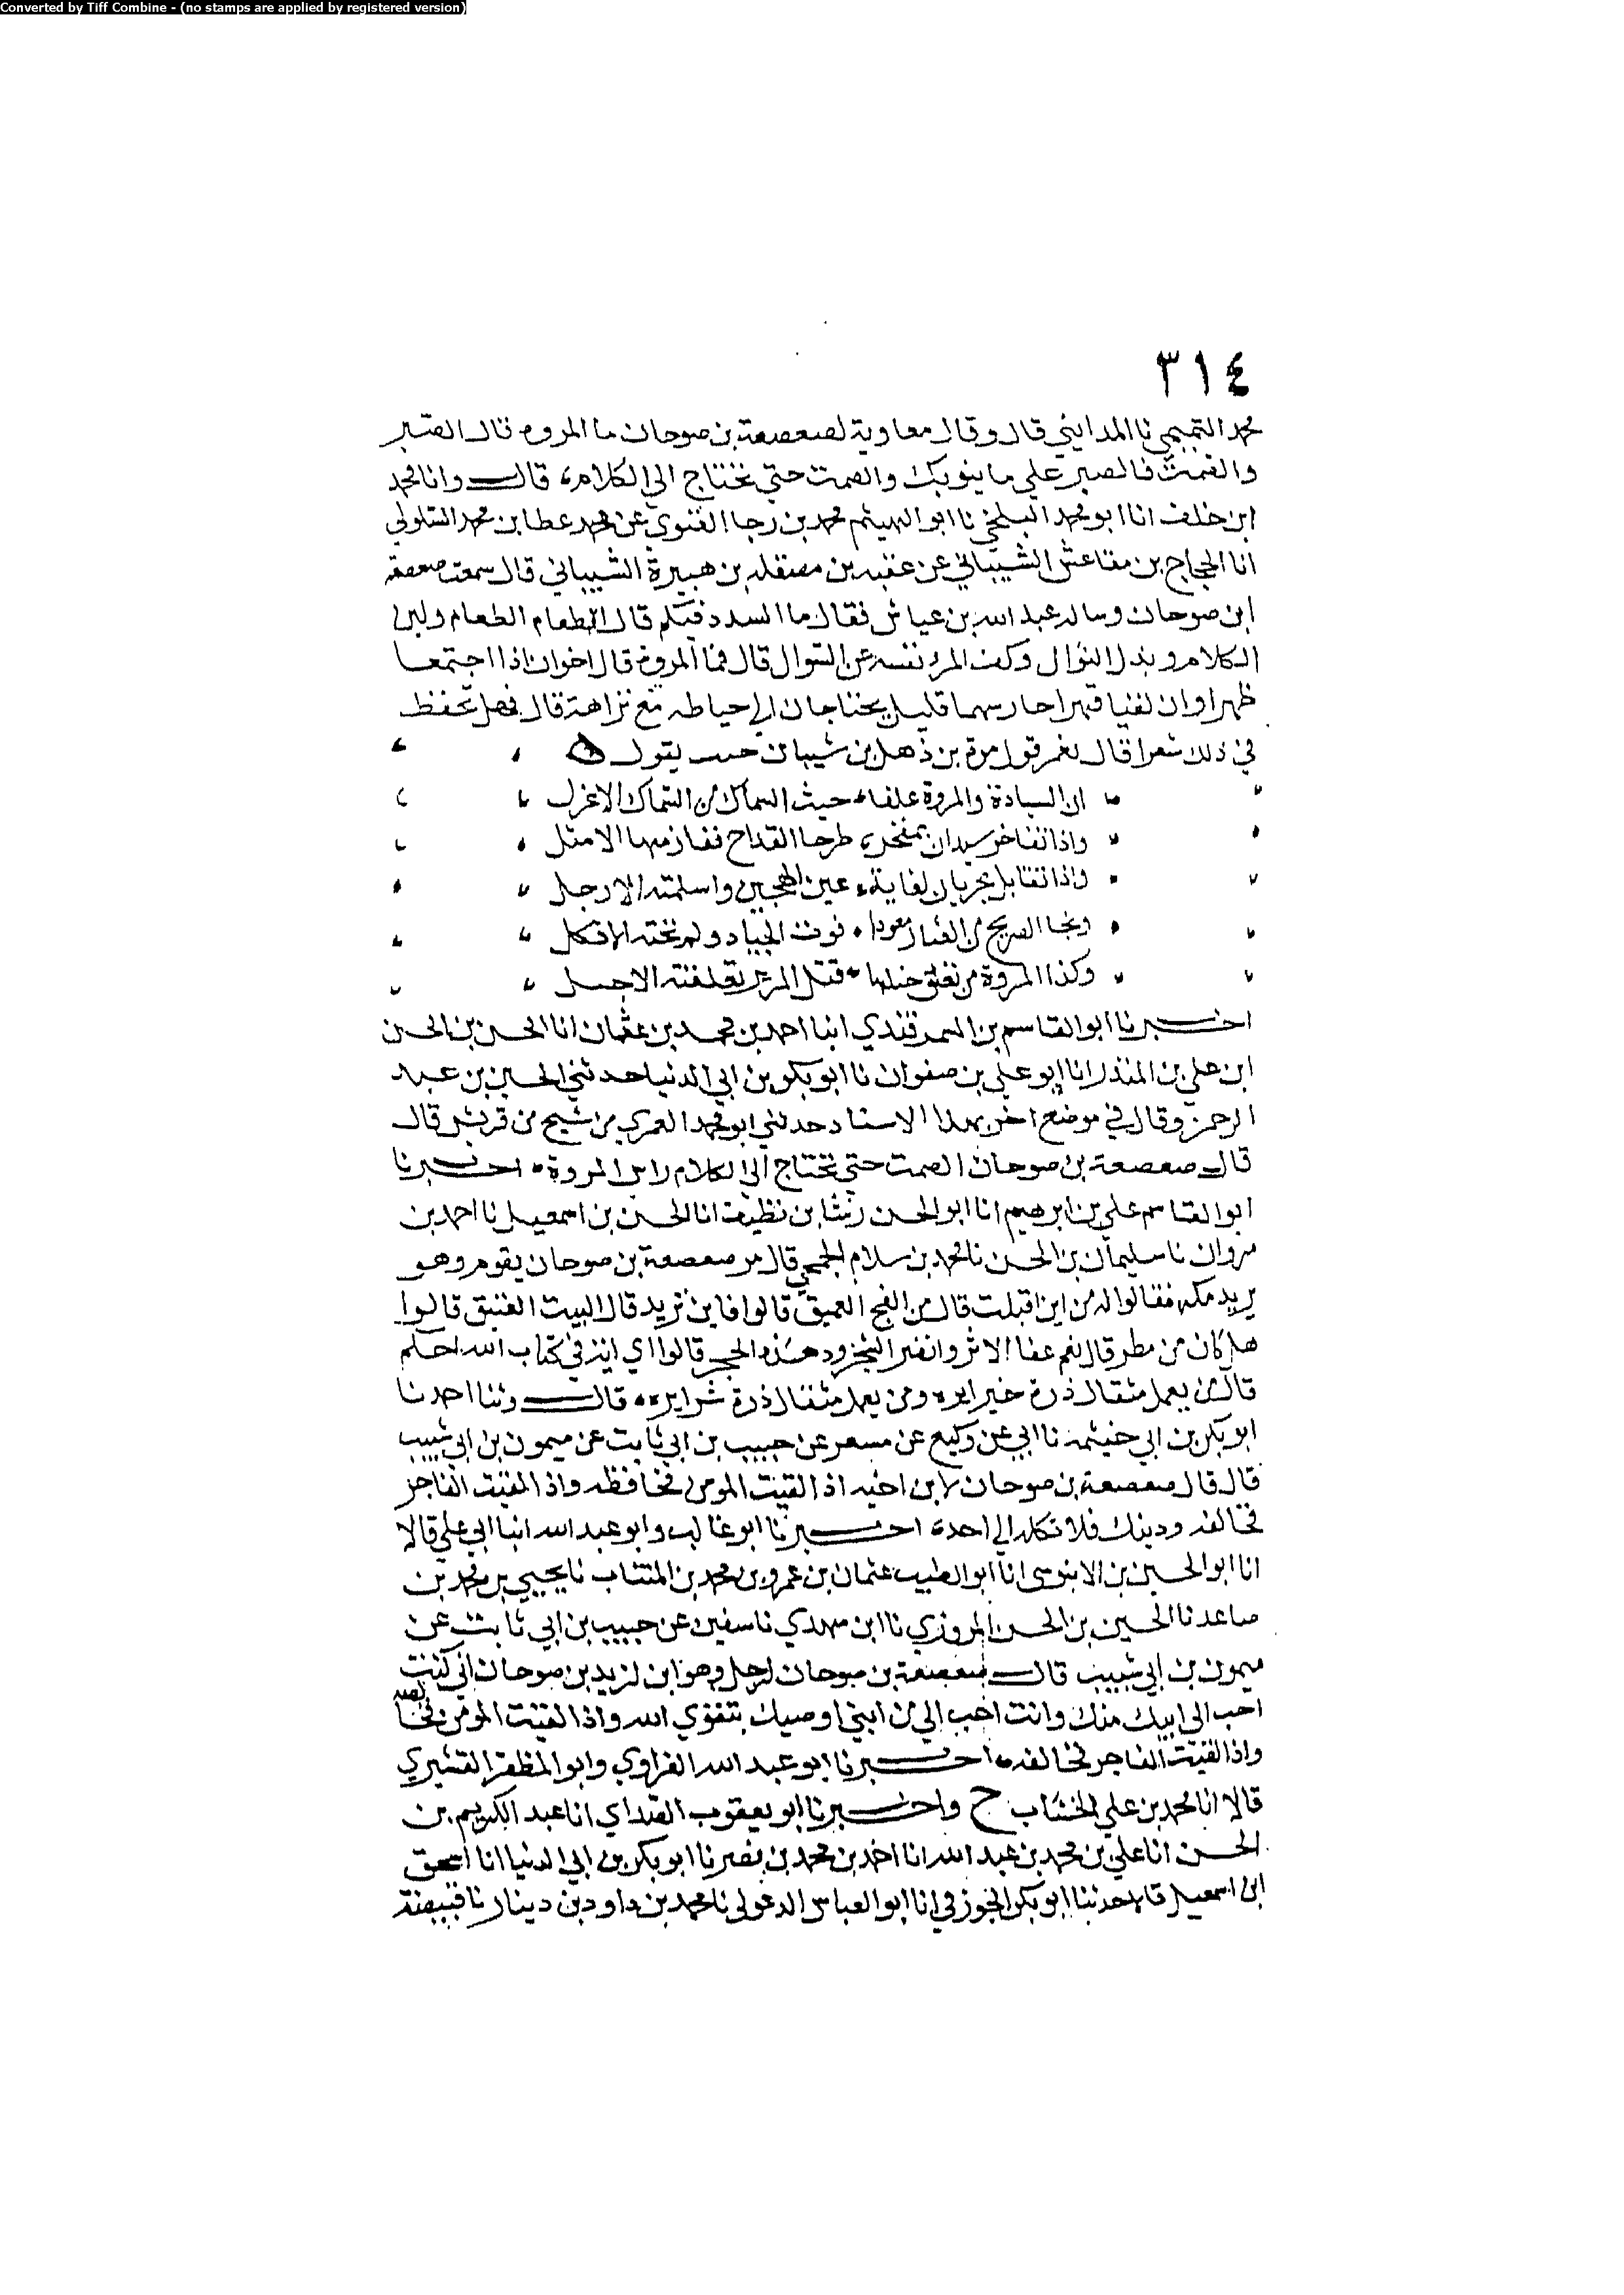 Converted by Tiff Combine - (no stamps are applied by registered version)
٣١٤
محمد التميمي نا المدايني قال وقال معاوية لصعصعة بن صوحان ما المروه قال الصبر
والصمت فالصبر على ما ينوبك والصمت حتى تحتاج الى الكلام قال وانا محمد
ابن خلف انا ابو محمد البلخي نا ابو الهيثم محمد بن رجا الغنوي عن محمد عطا بن محمد السلولي
انا الحجاج بن مقاعش الشيباني عن عقبه بن مصقله بن هبيرة الشيباني قال سمعت صعصعه
ابن صوحان وساله عبد الله بن عياش فقال ما السدد فيكم قال اطعام الطعام ولين
الكلام وبذل النوال وكف المرء نفسه عن السوال قال فما المروة قال اخوان اذا اجتمعا
ظهرا وان لقيا قهرا حارسهما قليل يحتاجان الى حياطه مع نزاهة قال فهل تحفظ
في ذلك شعرا قال نعم قول مرة بن ذهل بن شيبان حيث يقول
ان السيادة والمروة علقا حيث السماك من السماك الاعزل
واذا تفاخر سيدان بمفخر طرحا القداح ففاز منها الامثل
واذا تقابل يجريان لغاية عين الهجين واسلمته الارجل
ونجا الصريح من العثار معودا فوت الجياد ولم تخنه الافكل
وكذا المروة من تعلق حبلها قتل المرير تعلقته الاحبل
اخبرنا ابو القاسم بن السمرقندي انبا احمد بن محمد بن عثمان انا الحسن بن الحسن
ابن علي بن المنذر انا ابو علي بن صفوان نا ابو بكر بن ابي الدنيا حدثني الحسين بن عبد
الرحمن وقال في موضع اخر بهذا الاسناد حدثني ابو محمد العمري من شيخ من قريش قال
قال صعصعة بن صوحان الصمت حتى تحتاج الى الكلام راس المروة اخبرنا
ابو القاسم علي بن ابرهيم انا ابو الحسن رشا بن نظيف انا الحسن بن اسمعيل نا احمد بن
مروان نا سليمان بن الحسن نا محمد بن سلام الجمحي قال مر صعصعة بن صوحان بقوم وهو
يريد مكه فقالوا له من اين اقبلت قال من الفج العميق قالوا فاين تريد قال البيت العتيق قالوا
هل كان من مطر قال نعم عفا الاثر وانضر الشجر ودهده الحجر قالوا اي اية في كتاب الله احكم
قال من يعمل مثقال ذرة خيرا يره ومن يعمل مثقال ذرة شرا يره قال وثنا احمد نا
ابو بكر بن ابي خيثمه نا ابي عن وكيع عن مسعر عن حبيب بن ابي ثابت عن ميمون بن ابي شبيب
قال قال صعصعة بن صوحان لابن اخيه اذا لقيت المومن فخافظه واذا لقيت الفاجر
فخالفه ودينك فلا تكله الى احد اخبرنا ابو غالب وابو عبد الله انبا ابي علي قالا
انا ابو الحسين بن الابنوسي انا ابو الطيب عثمان بن عمرو بن محمد بن المنتاب نا يحيى بن محمد بن
صاعد نا الحسين بن الحسن المروزي نا ابن مهدي نا سفين عن حبيب بن ابي ثابت عن
ميمون بن ابي شبيب قال صعصعة بن صوحان لرجل وهو ابن لزيد بن صوحان اني كنت
احب الى ابيك منك وانت احب الي من ابني اوصيك بتقوي الله واذا لقيت المومن فخالصه
واذا لقيت الفاجر فخالقه اخبرنا ابو عبد الله الفراوي وابو المظفر القشيري
قالا انا محمد بن علي الخشاب ح واخبرنا ابو يعقوب انا عبد الكريم بن
الحسن انا علي بن محمد بن عبد الله انا احمد بن محمد بن نصر نا ابو بكر بن ابي الدنيا انا اسحق
ابن اسمعيل قالا حدثنا ابو بكر الجوزقي انا ابو العباس الدغولي نا محمد بن داود بن دينار نا قبيصة